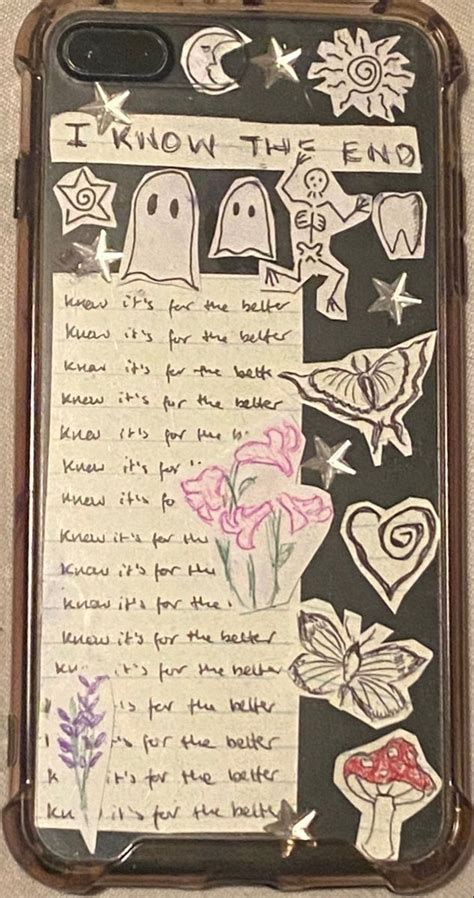 I KNOW THE END
know it's for the better
know it's for the better
know it's for the bette
know it's for the better
know it's for the b
know it's for
know it's fo
know it's for the
know it's for the
know it's for the
know it's for the better
kn it's for the better
's for the better
's for the better
k it's for the better
kn it's for the better